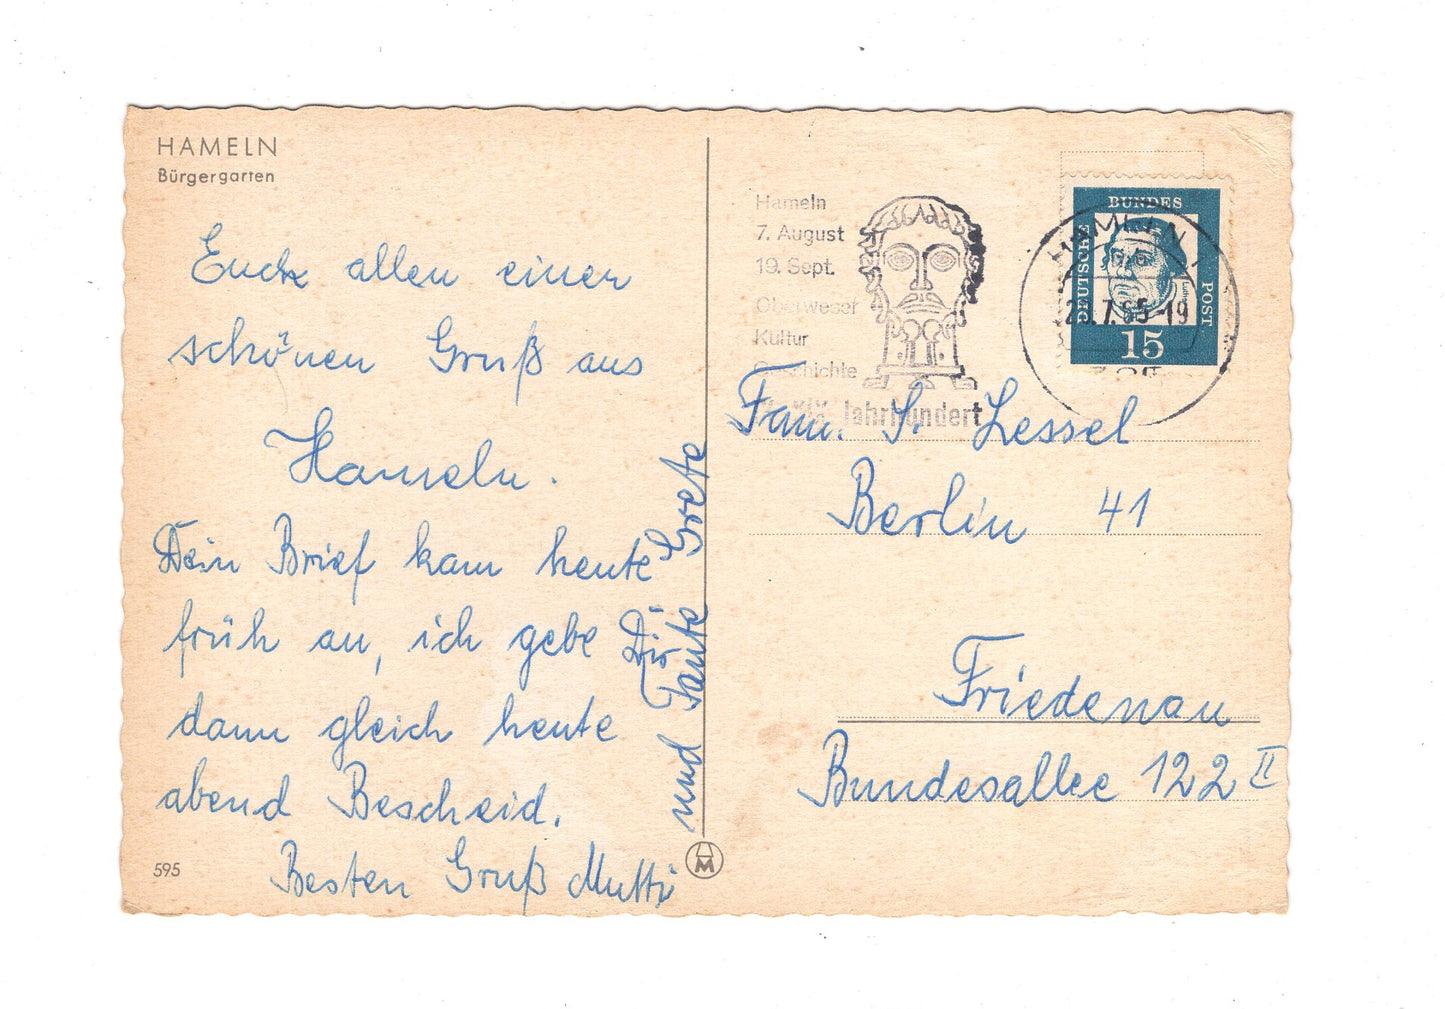 HAMELN
Bürgergarten
Euch allen einen
schönen Gruß aus
Hameln.
Dein Brief kam heute
früh an, ich gebe Dir
dann gleich heute
abend Bescheid.
Besten Gruß Mutti
und Tante Grete
595
M
Hameln
7. August
19. Sept.
Oberweser
Kultur
Geschichte
XIX. Jahrhundert
DEUTSCHE
BUNDES
POST
15
HAMELN 1
.7.65-19
Fam. S. Lessel
Berlin 41
Friedenau
Bundesallee 122 II